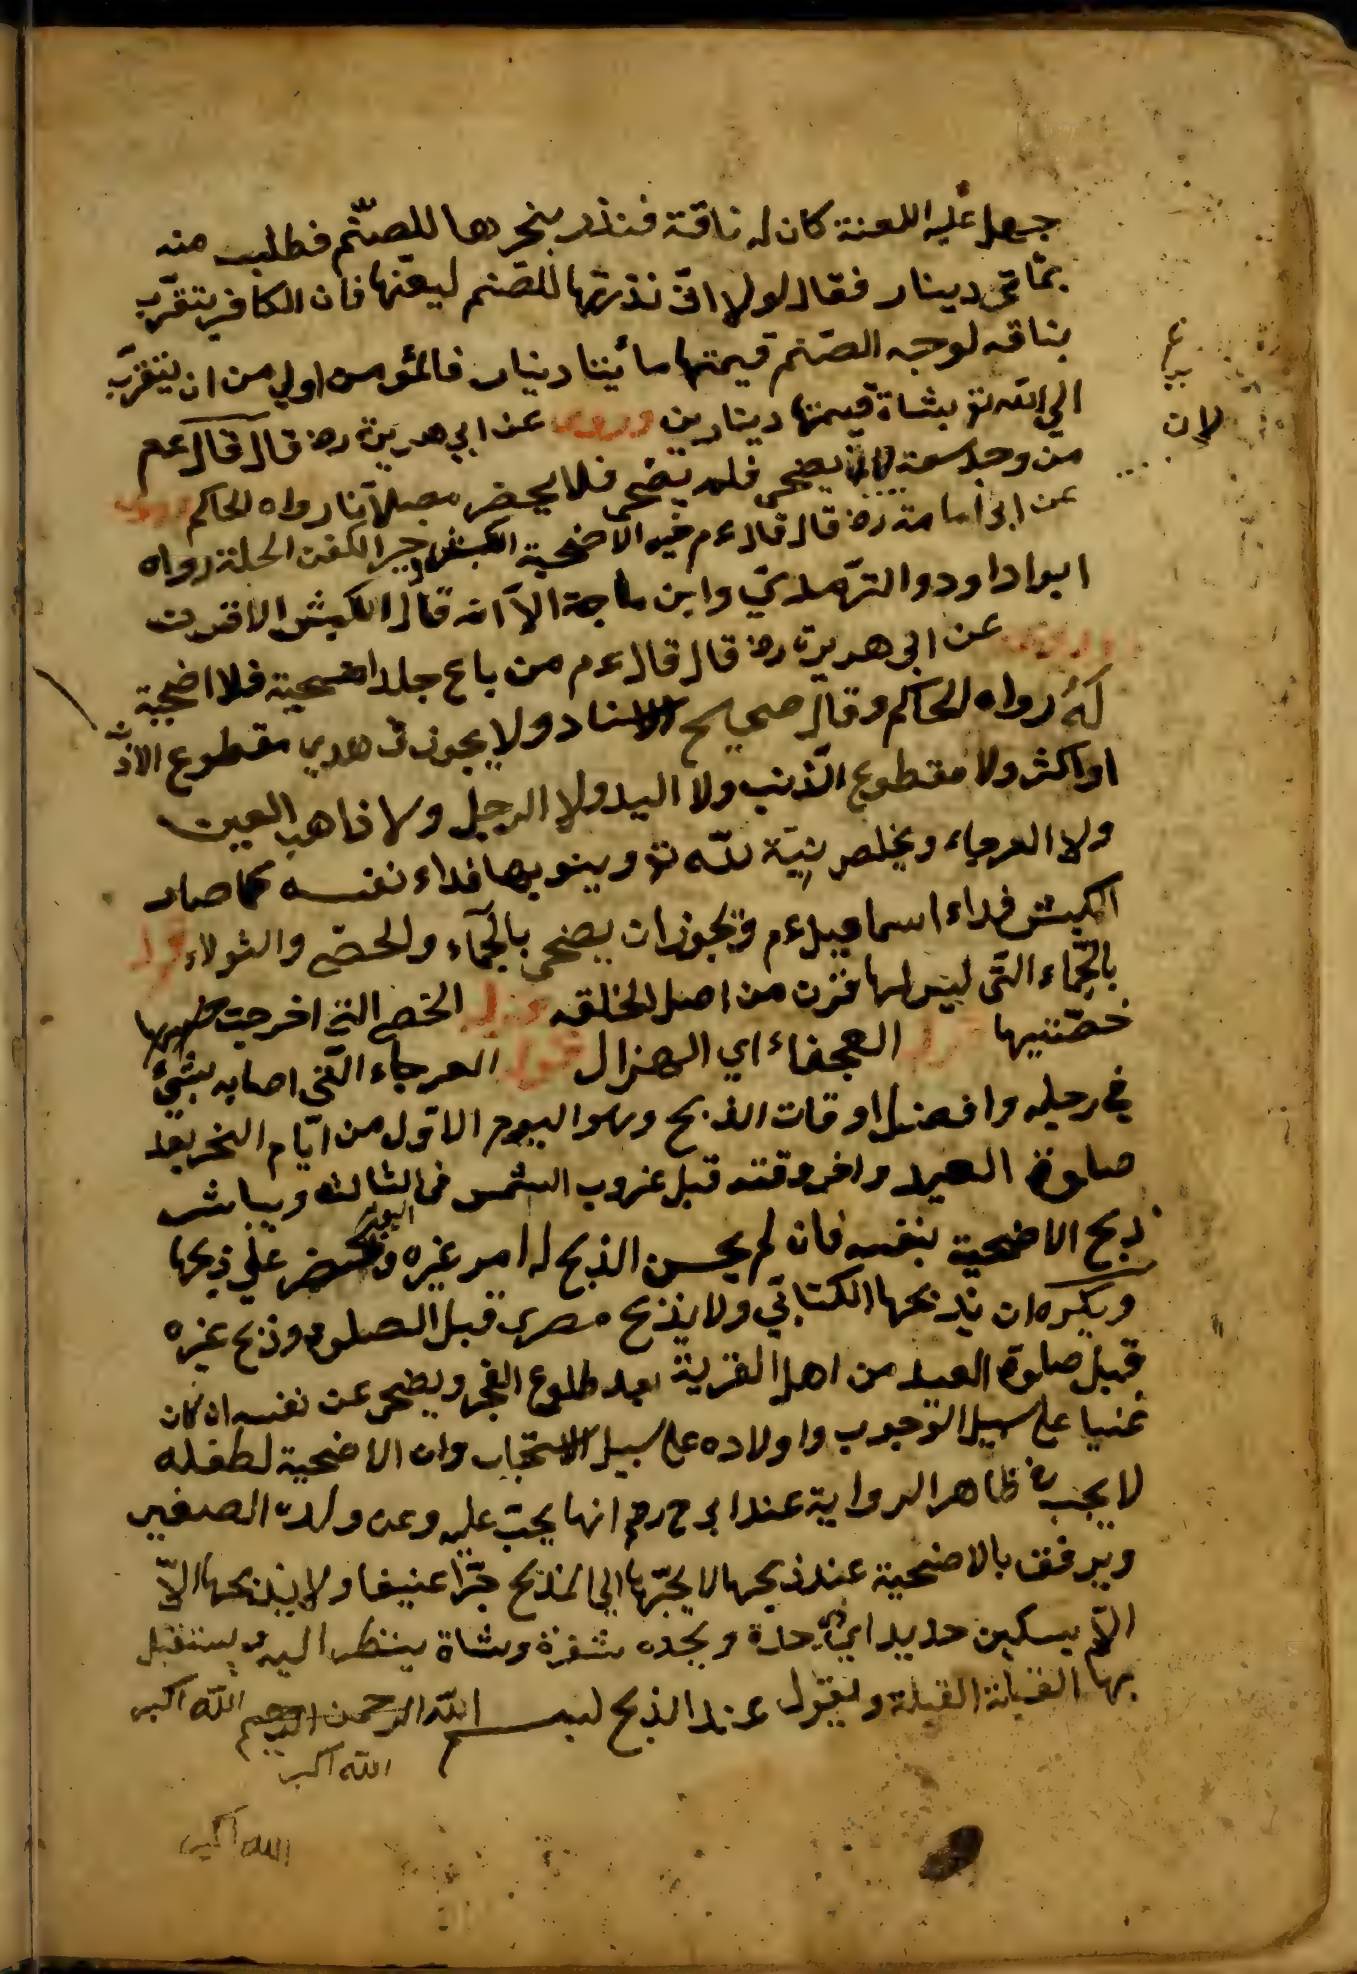 جهل عليه اللعنة كان له ناقة فنذر بنحرها للصنّم فطلب منه
بمأتى دينار فقال لولا انّى نذرتها للصّنم لبعتها فان الكافر يتقرّب
بناقه لوجه الصّنم قيمتها مأيتا دينار فالمؤمن اولى من ان يتقرّب
الى الله تع بشاة قيمتها دينارين وروى عن ابى هريرة رض قال قال عم
من وجد سعة لان يضحى فلم يضحّ فلا يحضر مصلاّنا رواه الحاكم وروى
عن ابى امامة رض قال قال عم خير الاضحية الكبش وخير الكفن الحلة رواه
ابو اداود والترّمذيّ وابن ماجة الاّ انه قال الكبش الاقرن
وروى عن ابى هريرة رض قال قال عم من باع جلد اضحية فلا اضحية
لهُ رواه الحاكم وقال صحيح الاسناد ولا يجوز فى هدى مقطوع الاذن
او اكثر ولا مقطوع الذّنب ولا اليد ولا الرجل ولا ذاهب العين
ولا العرجاء ويخلص نيّة لله تع وينو بها فداء نفسه كما صار
الكبش فداء اسماعيل عم ويجوز ان يضحى بالجمّاء والخصّى والثولاء قوله
بالجّماء التّى ليس لها قرن من اصل الخلقه قوله الخصى التى اخرجت
خصّتيها قوله العجفاء اي الهزال قوله العرجاء التّى اصابه بشئ
في رجله وافضل اوقات الذبح وهو اليوم الاوّل من ايّام النحر بعد
صلوة العيد واخر وقته قبل غروب الشمس فى الثالث ويباشر
ذبح الاضحية بنفسه فان لم يحسن الذبح له امر غيره ويحضر علي ذبحها
ويكره ان يذبحها الكتابيّ ولا يذبح مصرى قبل الصلوة وذبح غيره
قبل صلوة العيد من اهل القرية بعد طلوع الفجر ويضحى عن نفسه ان كان
غنيا على سبيل الوجوب واولاده على سبيل الاستحباب وان الاضحية لطفله
لا يجب فى ظاهر الرواية عند ابى ح رح انها يجب عليه وعن ولده الصغير
ويرفق بالاضحية عند ذبحها لا يجرّها الى المذبح جرّا عنيفا ولا يذبحها الاّ
الاّ بسكين حديد اى ذى حدة ويحده شفرة وشاة ينظر اليه ويستقبل
بها القبلة القبلة ويقول عند الذبح لبسم الله الرحمن الرحيم الله اكبر
الله اكبر
الله اكبر
لان